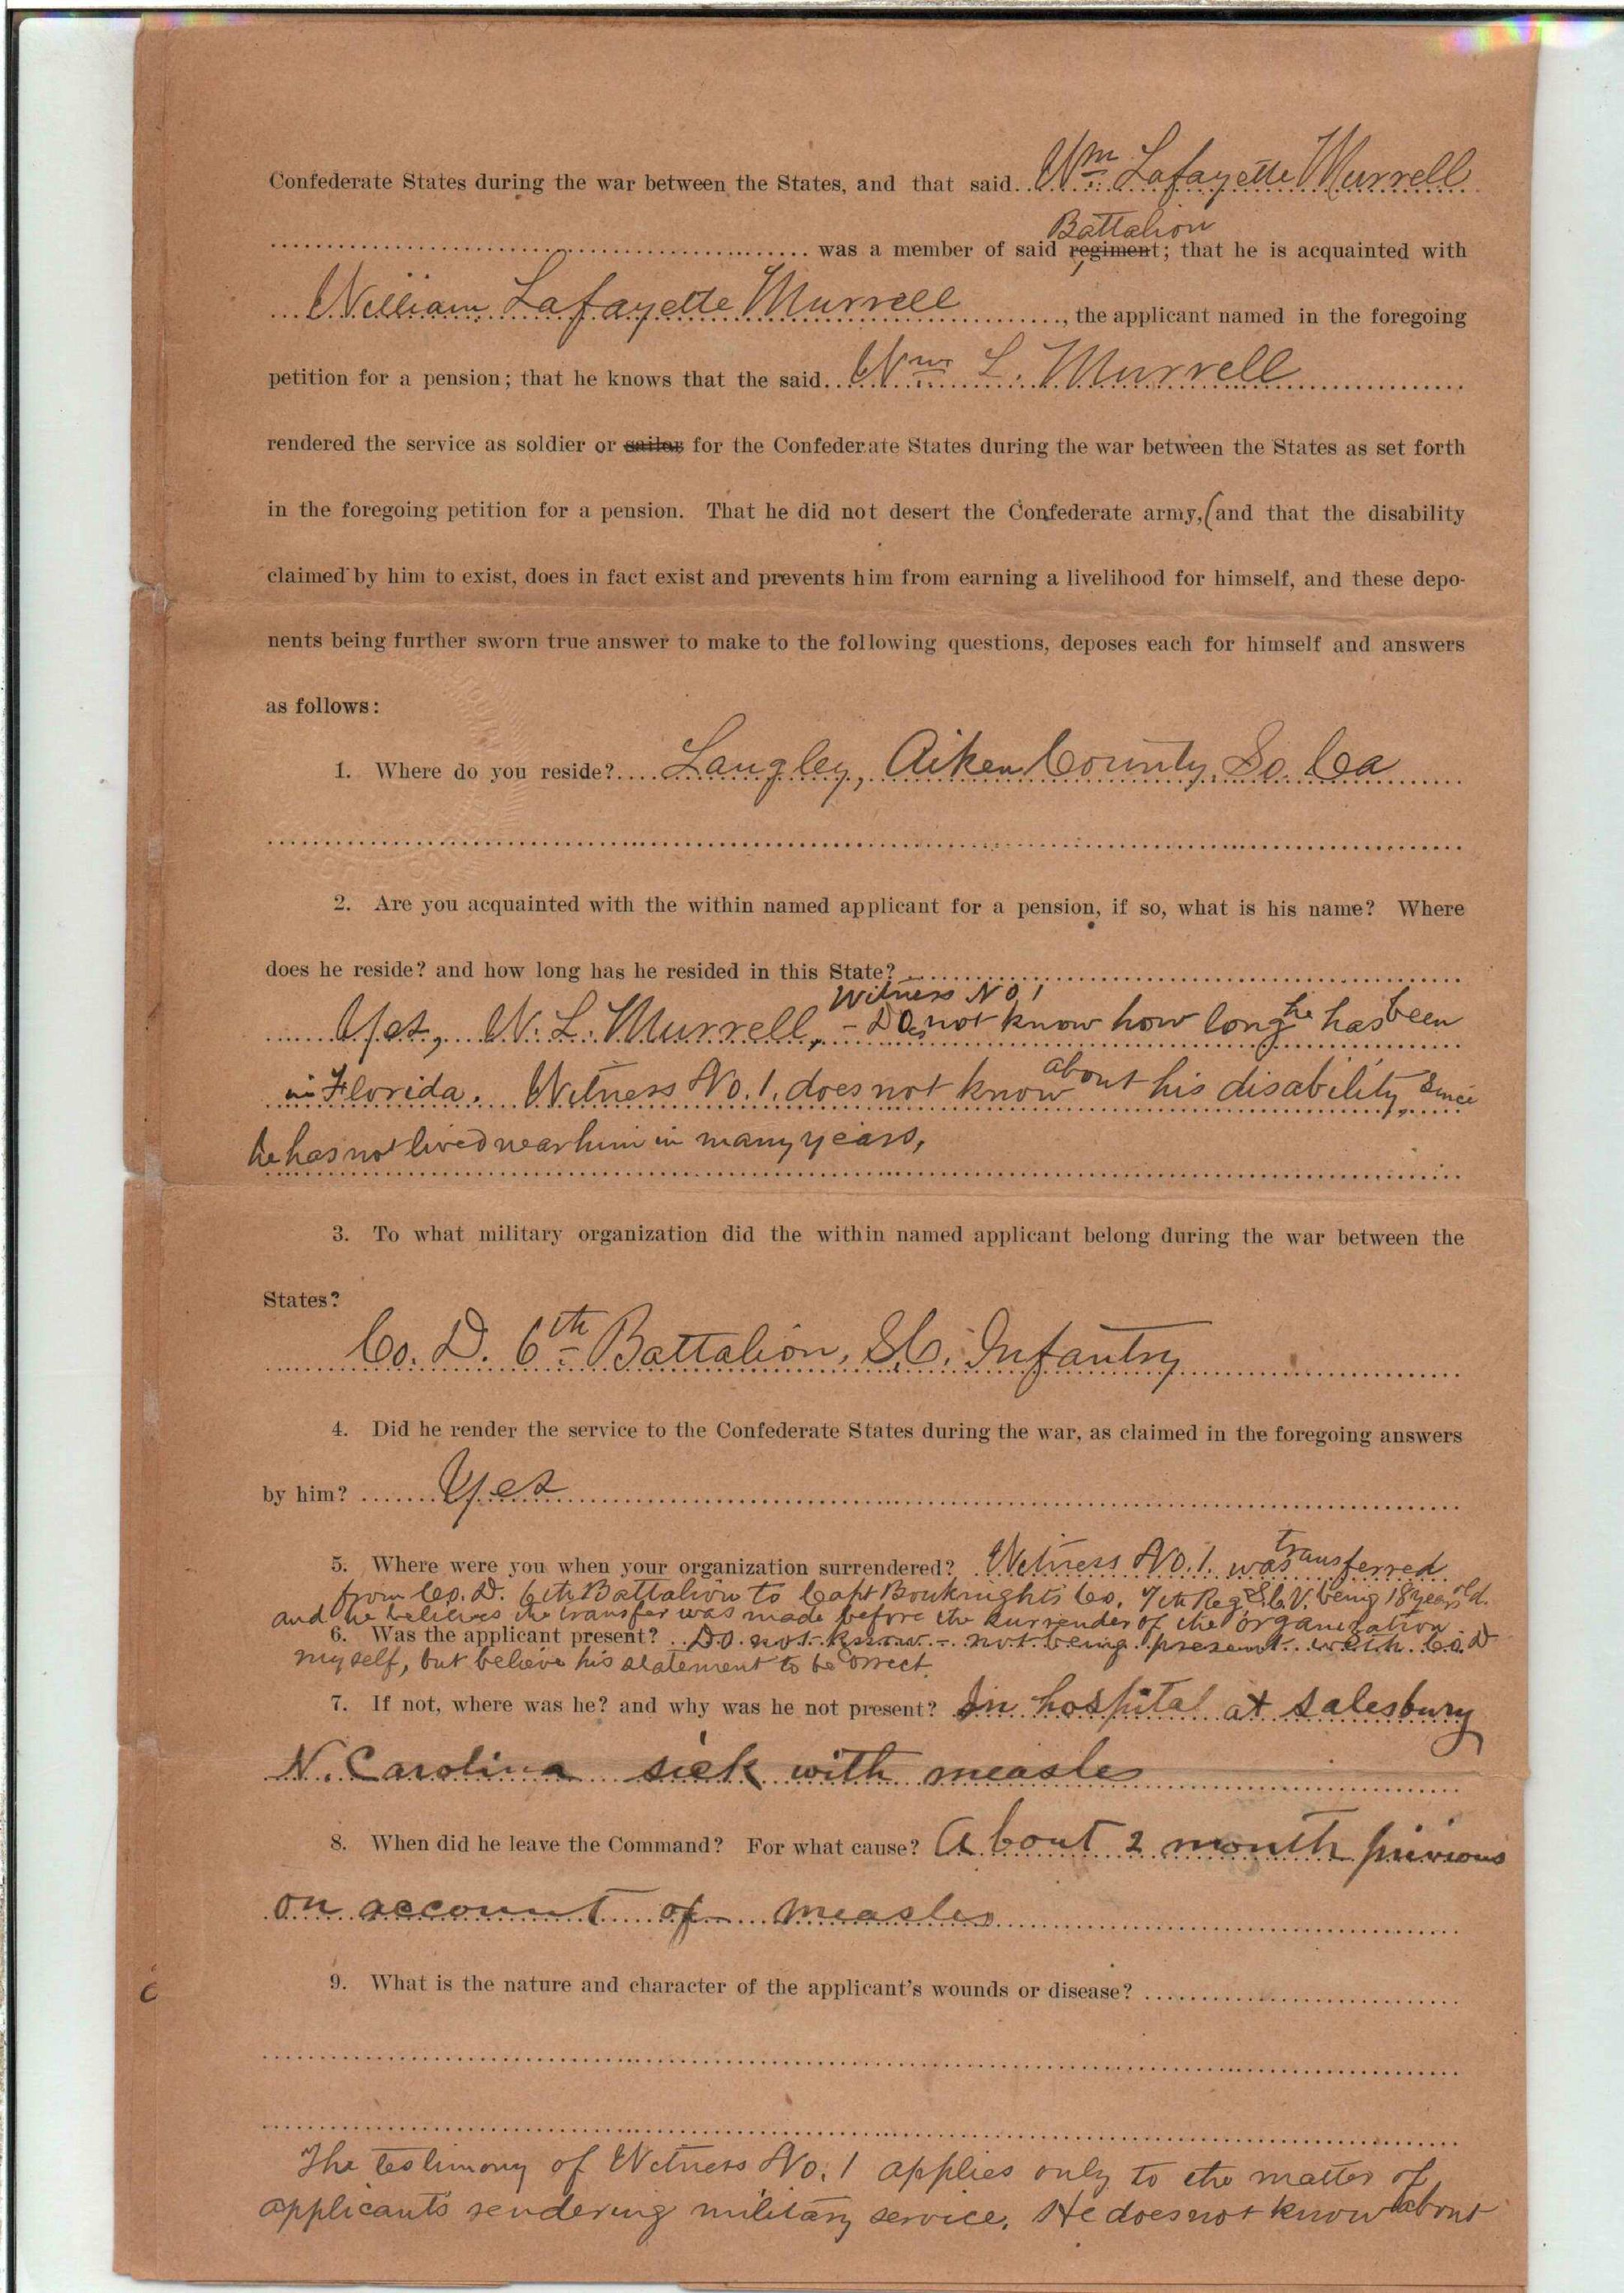 Confederate States during the war between the States, and that said Wm Lafayette Murrell
Battalion
was a member of said regiment; that he is acquainted with
William Lafayette Murrell, the applicant named in the foregoing
petition for a pension; that he knows that the said Wm L. Murrell
rendered the service as soldier or sailor for the Confederate States during the war between the States as set forth
in the foregoing petition for a pension. That he did not desert the Confederate army, (and that the disability
claimed by him to exist, does in fact exist and prevents him from earning a livelihood for himself, and these depo-
nents being further sworn true answer to make to the following questions, deposes each for himself and answers
as follows:
1. Where do you reside? Langley, Aiken County, So. Ca
2. Are you acquainted with the within named applicant for a pension, if so, what is his name? Where
does he reside? and how long has he resided in this State?
Witness No 1
Yes, W. L. Murrell, - Does not know how long he has been
in Florida. Witness No. 1. does not know about his disability, since
he has not lived near him in many years,
3. To what military organization did the within named applicant belong during the war between the
States?
Co. D. 6th Battalion, S.C. Infantry
4. Did he render the service to the Confederate States during the war, as claimed in the foregoing answers
by him? Yes
5. Where were you when your organization surrendered? Witness No. 1. was transferred
from Co. D. 6th Battalion to Capt Bouknights Co. 7th Reg S.C.V. being 18 years old.
and he believes the transfer was made before the surrender of the organization
6. Was the applicant present? Do not know - not being present with Co. D
myself, but believe his statement to be correct.
7. If not, where was he? and why was he not present? In hospital at Salesbury
N. Carolina sick with measles
8. When did he leave the Command? For what cause? About 2 month privious
on account of measles
9. What is the nature and character of the applicant's wounds or disease?
The testimony of Witness No. 1 applies only to the matter of
applicants rendering military service. He does not know about